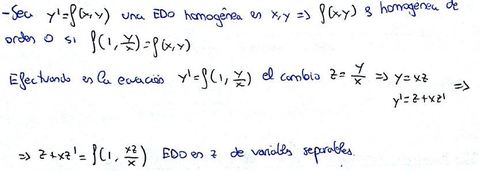 - Sea y' = f(x,y) una EDO homogénea en x,y => f(x,y) es homogénea de
orden 0 si f(1, y/x) = f(x,y)
Efectuando en la ecuación y' = f(1, y/x) el cambio z = y/x => y = xz =>
y' = z + xz'
=> z + xz' = f(1, xz/x) EDO en z de variables separables.